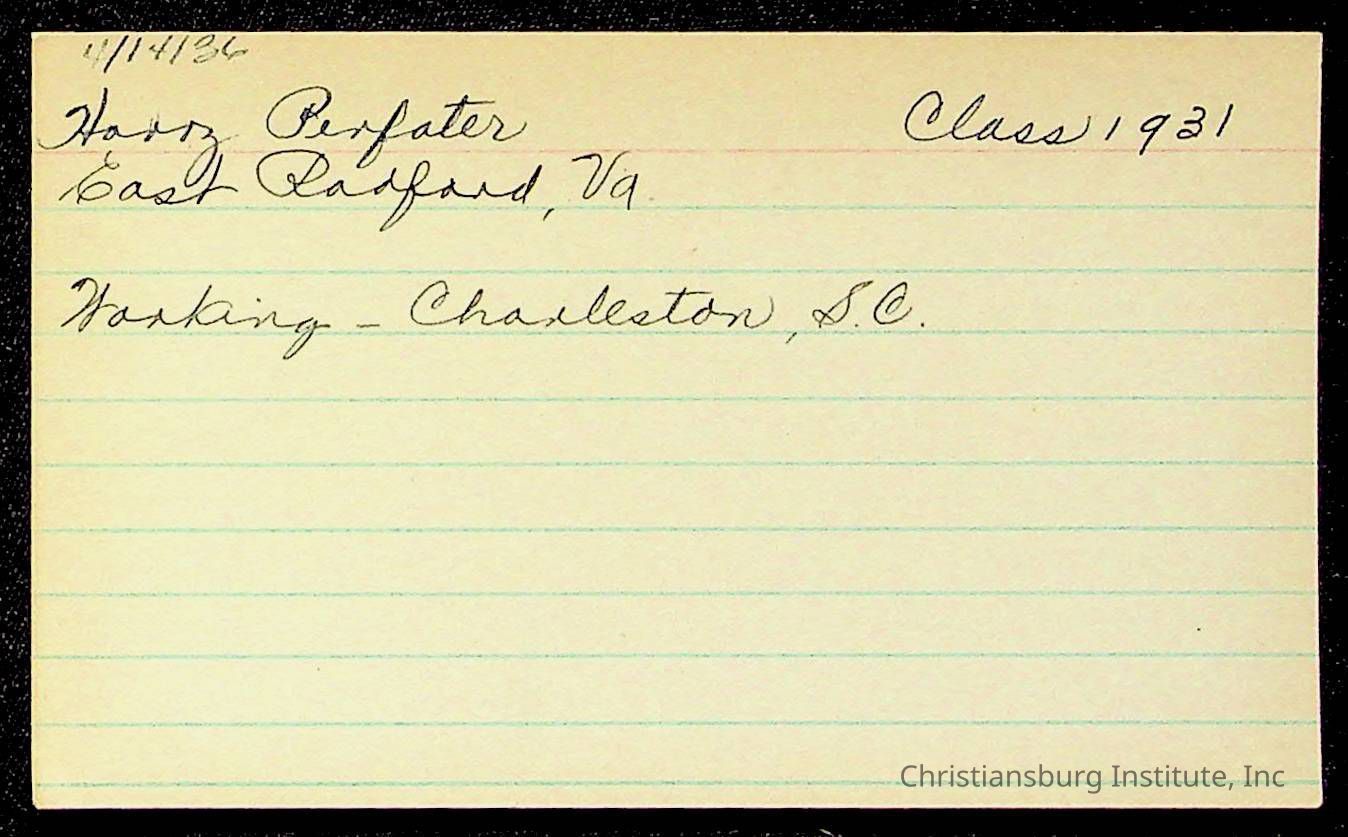 4/14/36
Harry Perfater Class 1931
East Radford, Va.
Working - Charleston, S.C.
Christiansburg Institute, Inc